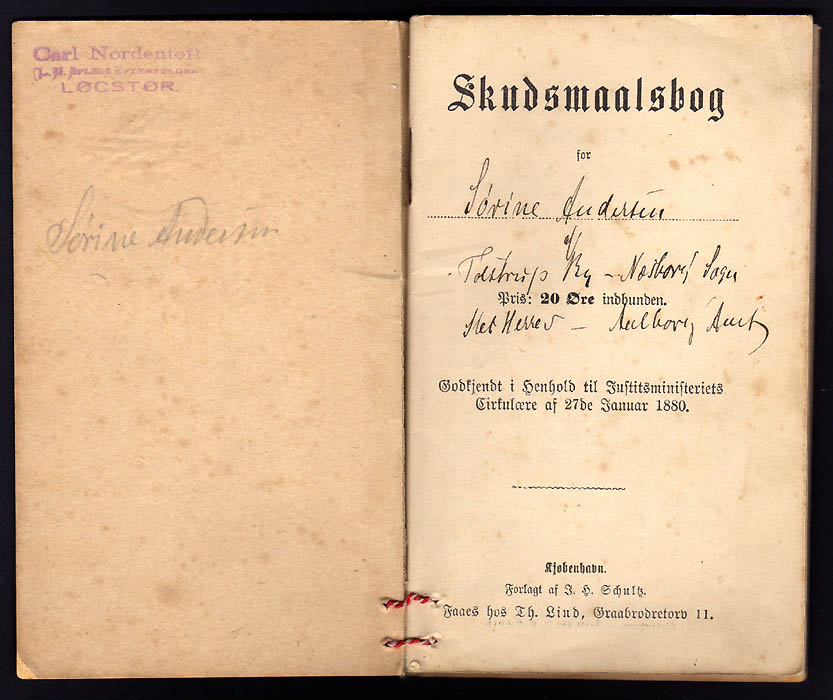 Carl Nordentoft
EFTERFØLGER
LØGSTØR.
Sørine Andersen
Skudsmaalsbog
for
Sørine Andersen
af
Tolstrup By - Næsborg Sogn
Pris: 20 Øre indbunden.
Slet Herred - Aalborg Amt
Godkjendt i Henhold til Justitsministeriets
Cirkulære af 27de Januar 1880.
Kjøbenhavn.
Forlagt af J. H. Schultz.
Faaes hos Th. Lind, Graabrødretorv 11.